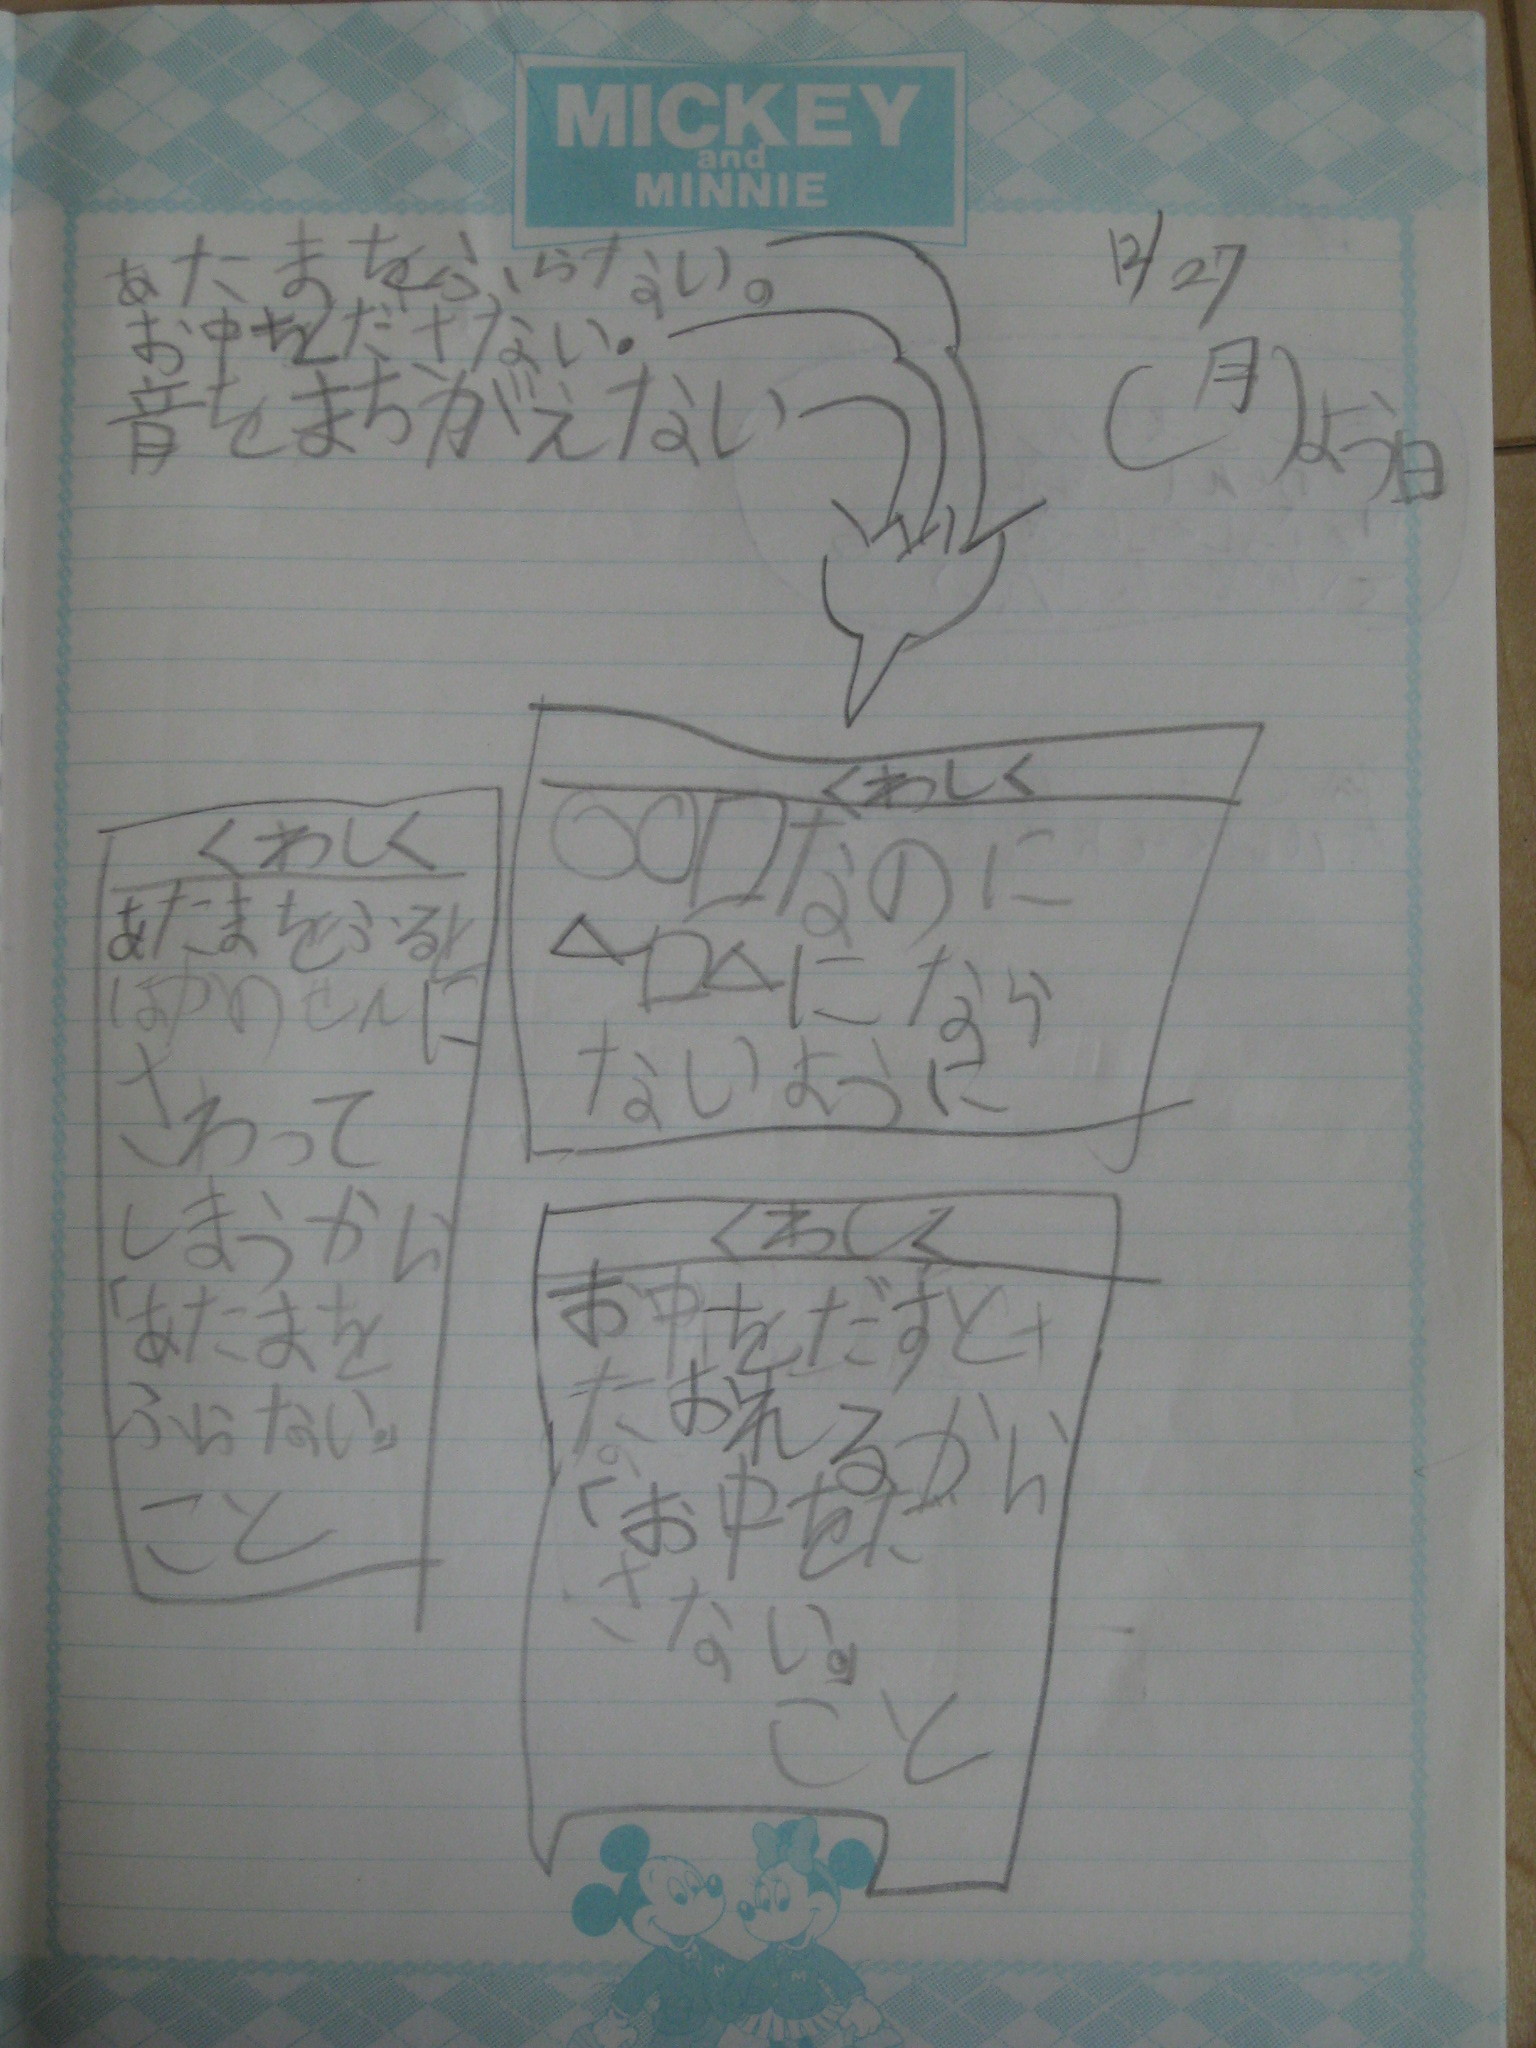 MICKEY
and
MINNIE
12/27
(月)よう日
あたまをふらない。
お中をださない。
音をまちがえない
くわしく
○○口なのに
△口△になら
ないように
くわしく
あたまをふると
さわって
しまうから
「あたまを
ふらない。」
こと
くわしく
お中をだすと
たおれるから
「お中をだ
さない。」
こと